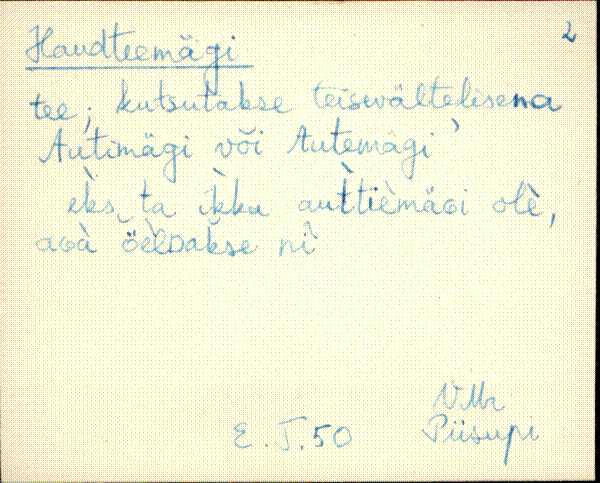 2
Haudteemägi
tee; kutsutakse teisevältelisena
Autimägi või Autemägi
eks ta ikka auttiemäɢi olè,
aɢà öèlᴅakse nì
E. T. 50
VMr
Piisupi